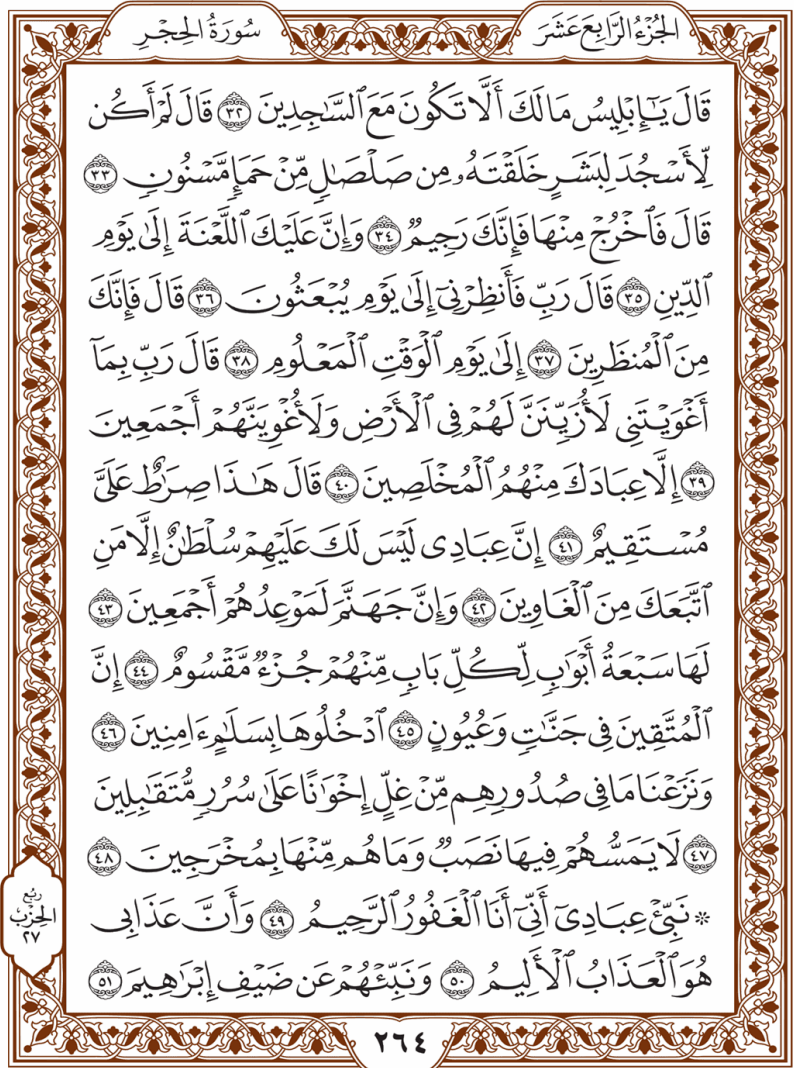 الجُزْءُ الرَّابِعَ عَشَرَ
سُورَةُ الحِجْرِ
قَالَ يَٰٓإِبْلِيسُ مَا لَكَ أَلَّا تَكُونَ مَعَ ٱلسَّٰجِدِينَ ٣٢ قَالَ لَمْ أَكُن
لِّأَسْجُدَ لِبَشَرٍ خَلَقْتَهُۥ مِن صَلْصَٰلٍ مِّنْ حَمَإٍ مَّسْنُونٍ ٣٣
قَالَ فَٱخْرُجْ مِنْهَا فَإِنَّكَ رَجِيمٌ ٣٤ وَإِنَّ عَلَيْكَ ٱللَّعْنَةَ إِلَىٰ يَوْمِ
ٱلدِّينِ ٣٥ قَالَ رَبِّ فَأَنظِرْنِىٓ إِلَىٰ يَوْمِ يُبْعَثُونَ ٣٦ قَالَ فَإِنَّكَ
مِنَ ٱلْمُنظَرِينَ ٣٧ إِلَىٰ يَوْمِ ٱلْوَقْتِ ٱلْمَعْلُومِ ٣٨ قَالَ رَبِّ بِمَآ
أَغْوَيْتَنِى لَأُزَيِّنَنَّ لَهُمْ فِى ٱلْأَرْضِ وَلَأُغْوِيَنَّهُمْ أَجْمَعِينَ
٣٩ إِلَّا عِبَادَكَ مِنْهُمُ ٱلْمُخْلَصِينَ ٤٠ قَالَ هَٰذَا صِرَٰطٌ عَلَىَّ
مُسْتَقِيمٌ ٤١ إِنَّ عِبَادِى لَيْسَ لَكَ عَلَيْهِمْ سُلْطَٰنٌ إِلَّا مَنِ
ٱتَّبَعَكَ مِنَ ٱلْغَاوِينَ ٤٢ وَإِنَّ جَهَنَّمَ لَمَوْعِدُهُمْ أَجْمَعِينَ ٤٣
لَهَا سَبْعَةُ أَبْوَٰبٍ لِّكُلِّ بَابٍ مِّنْهُمْ جُزْءٌ مَّقْسُومٌ ٤٤ إِنَّ
ٱلْمُتَّقِينَ فِى جَنَّٰتٍ وَعُيُونٍ ٤٥ ٱدْخُلُوهَا بِسَلَٰمٍ ءَامِنِينَ ٤٦
وَنَزَعْنَا مَا فِى صُدُورِهِم مِّنْ غِلٍّ إِخْوَٰنًا عَلَىٰ سُرُرٍ مُّتَقَٰبِلِينَ
٤٧ لَا يَمَسُّهُمْ فِيهَا نَصَبٌ وَمَا هُم مِّنْهَا بِمُخْرَجِينَ ٤٨
۞ نَبِّئْ عِبَادِىٓ أَنِّىٓ أَنَا ٱلْغَفُورُ ٱلرَّحِيمُ ٤٩ وَأَنَّ عَذَابِى
هُوَ ٱلْعَذَابُ ٱلْأَلِيمُ ٥٠ وَنَبِّئْهُمْ عَن ضَيْفِ إِبْرَٰهِيمَ ٥١
رُبْع
الحِزْب
٢٧
٢٦٤